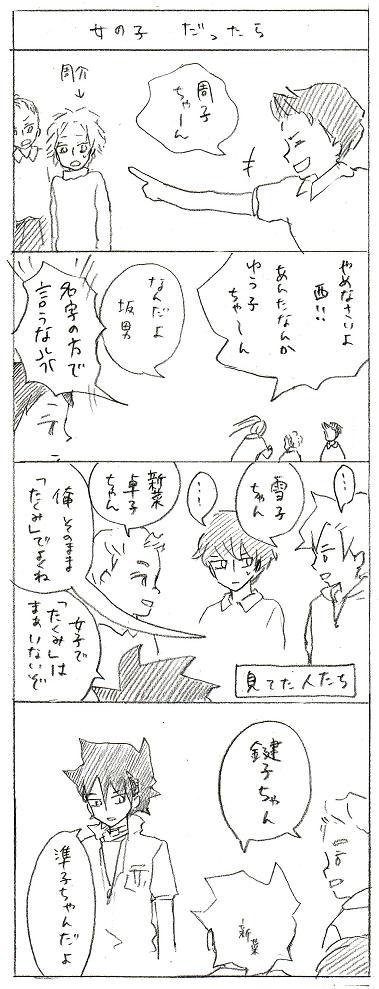 女の子　だったら
周子
ちゃーん
周介
↓
やめなさいよ
酉!!
あんたなんか
ゆう子
ちゃーん
なんだよ
坂男
名字の方で
言うなよ
…
雪子
ちゃん
…
新菜
卓子
ちゃん
俺そのまま
「たくみ」でよくね
女子で
「たくみ」は
まぁいないぞ
見てた人たち
鍵子ちゃん
新菜
準子ちゃんだよ
サ